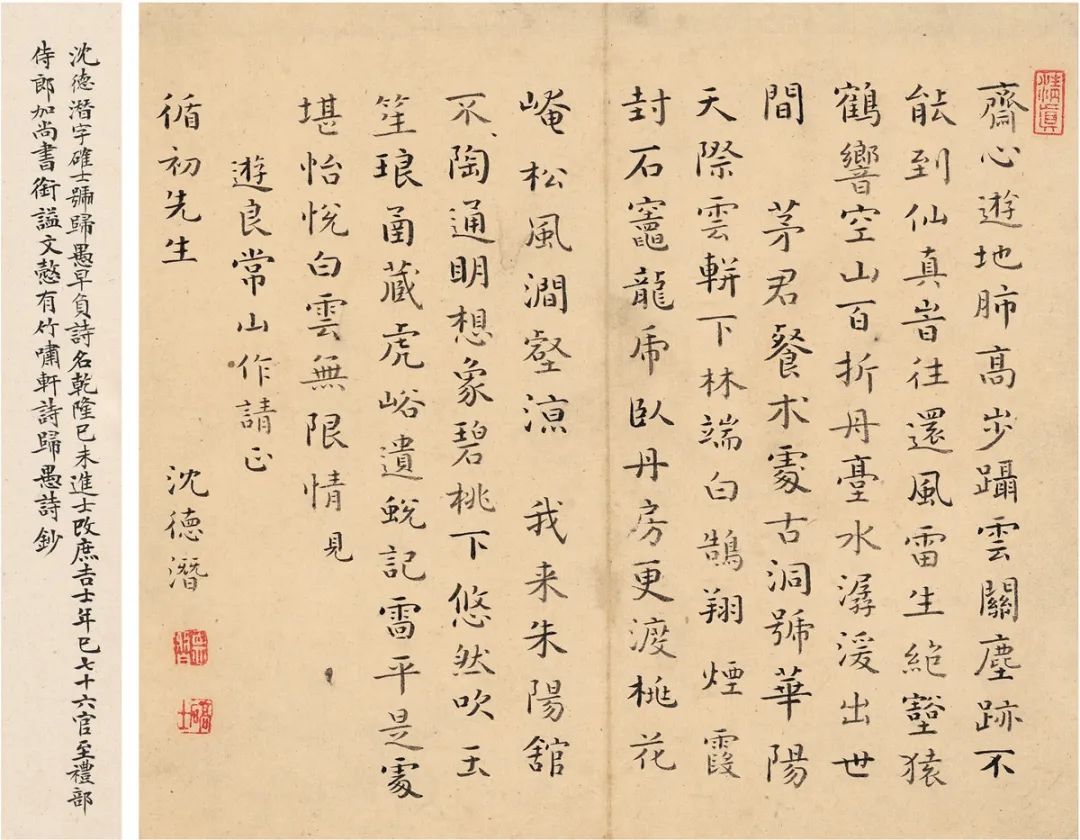 齋心遊地肺高步躡雲關塵跡不
能到仙真昔往還風雷生絶壑猿
鶴響空山百折丹臺水潺湲出世
間　茅君餐朮處古洞號華陽
天際雲軿下林端白鵠翔煙霞
封石竈龍虎臥丹房更渡桃花
崦松風澗壑涼　我来朱陽舘
不、陶通明想象碧桃下悠然吹玉
笙琅函藏虎峪遺蛻記雷平是處
堪怡悅白雲無限情見
遊良常山作請正
循初先生　沈德潛
沈德潛字確士號歸愚早負詩名乾隆己未進士改庶吉士年已七十六官至禮部
侍郎加尚書銜謚文慤有竹嘯軒詩歸愚詩鈔